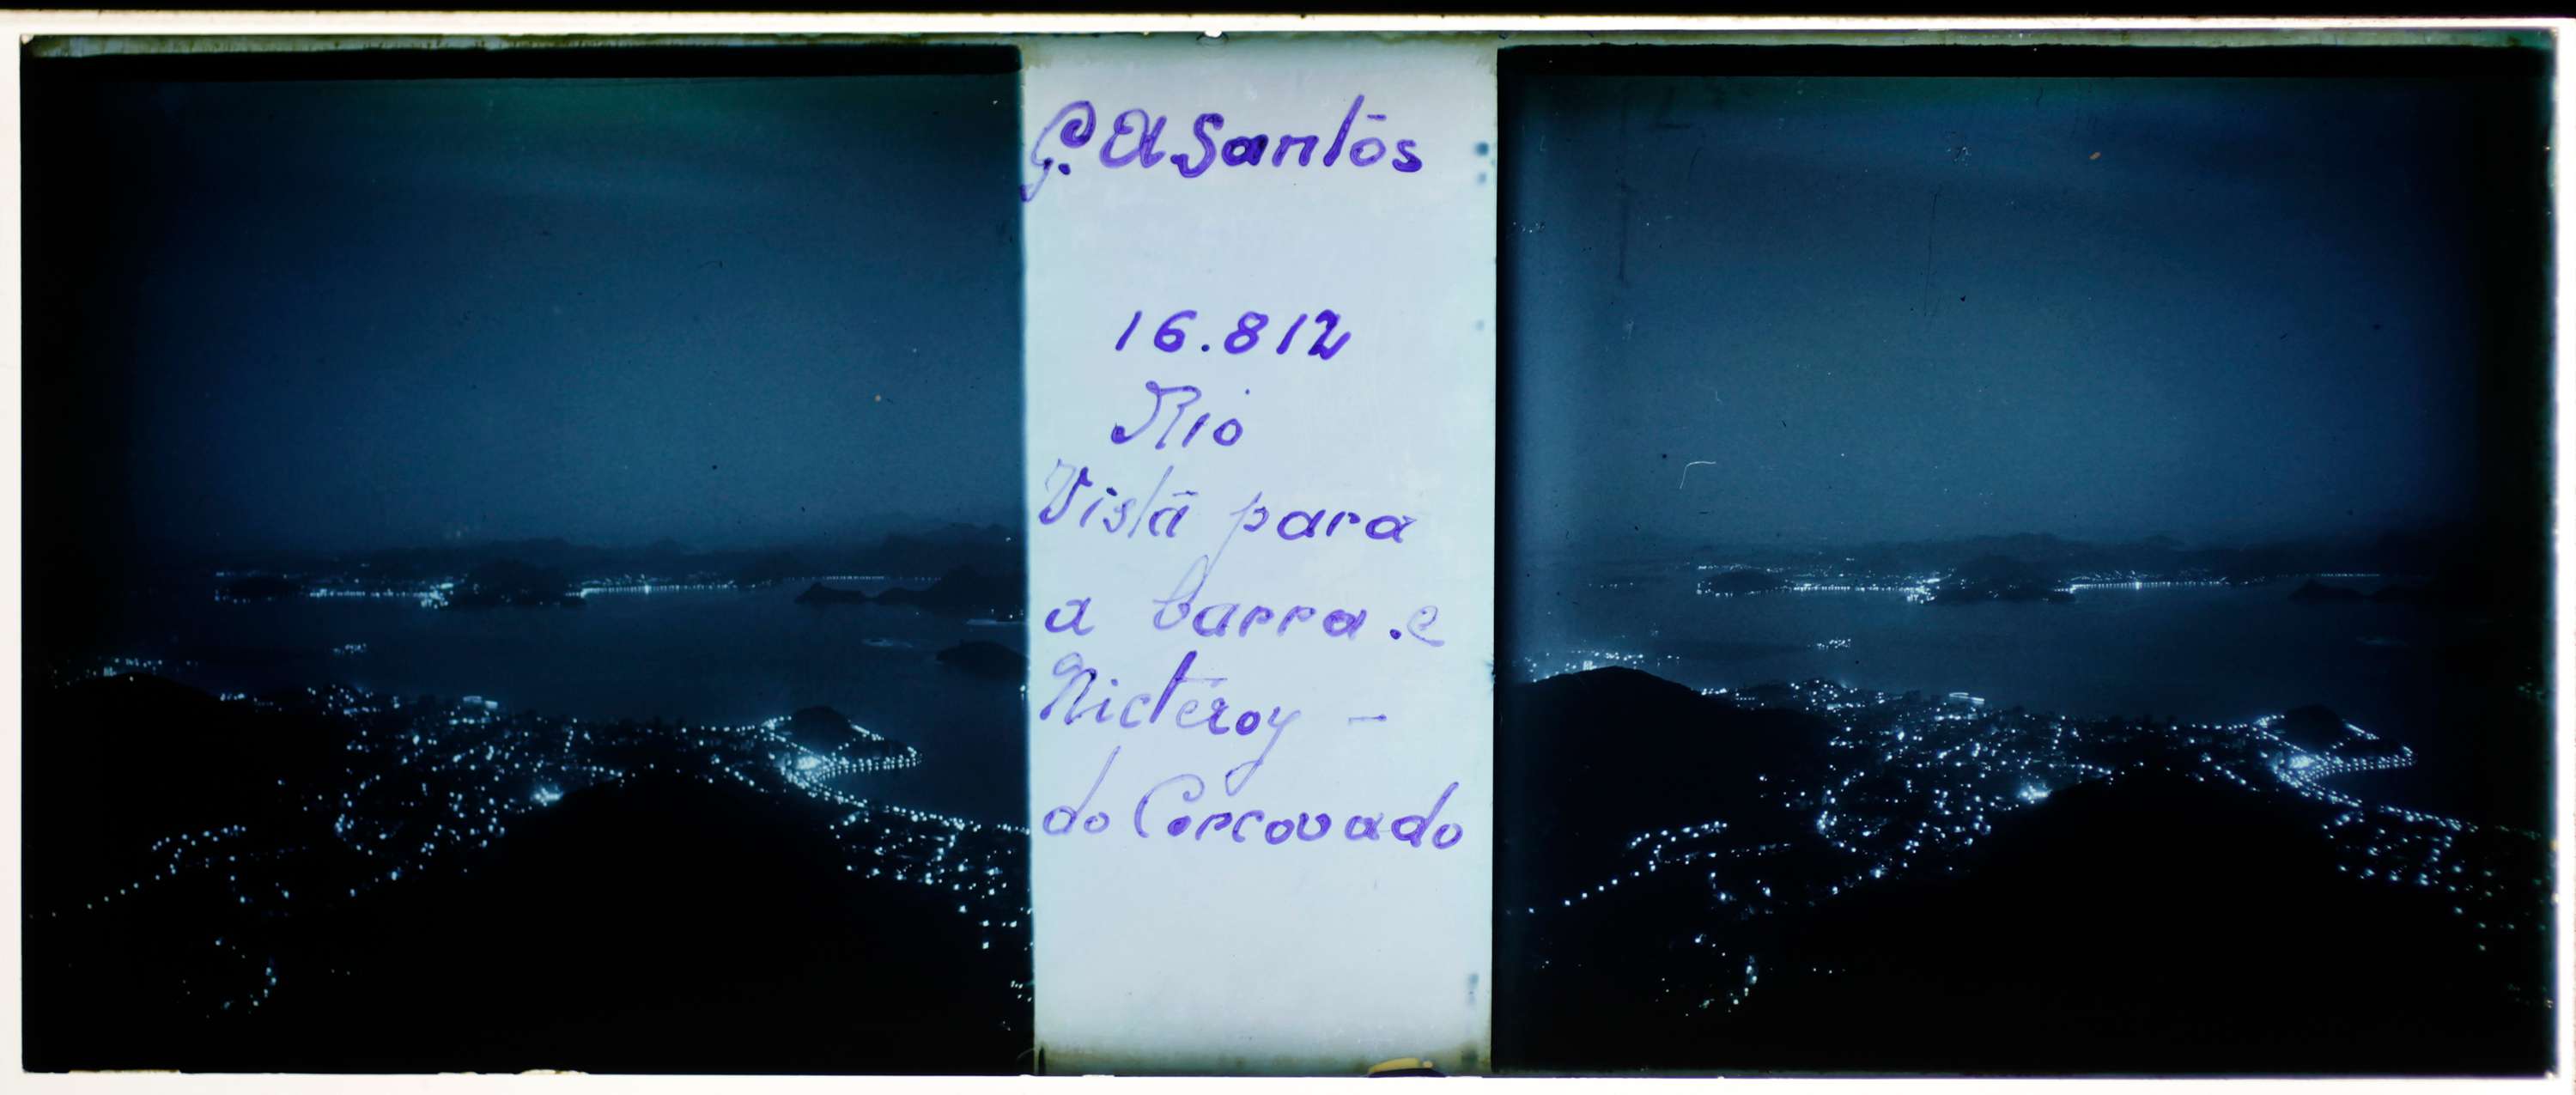 G. A Santos
16.812
Rio
Vista para
a barra. e
Nicteroy -
do Corcovado